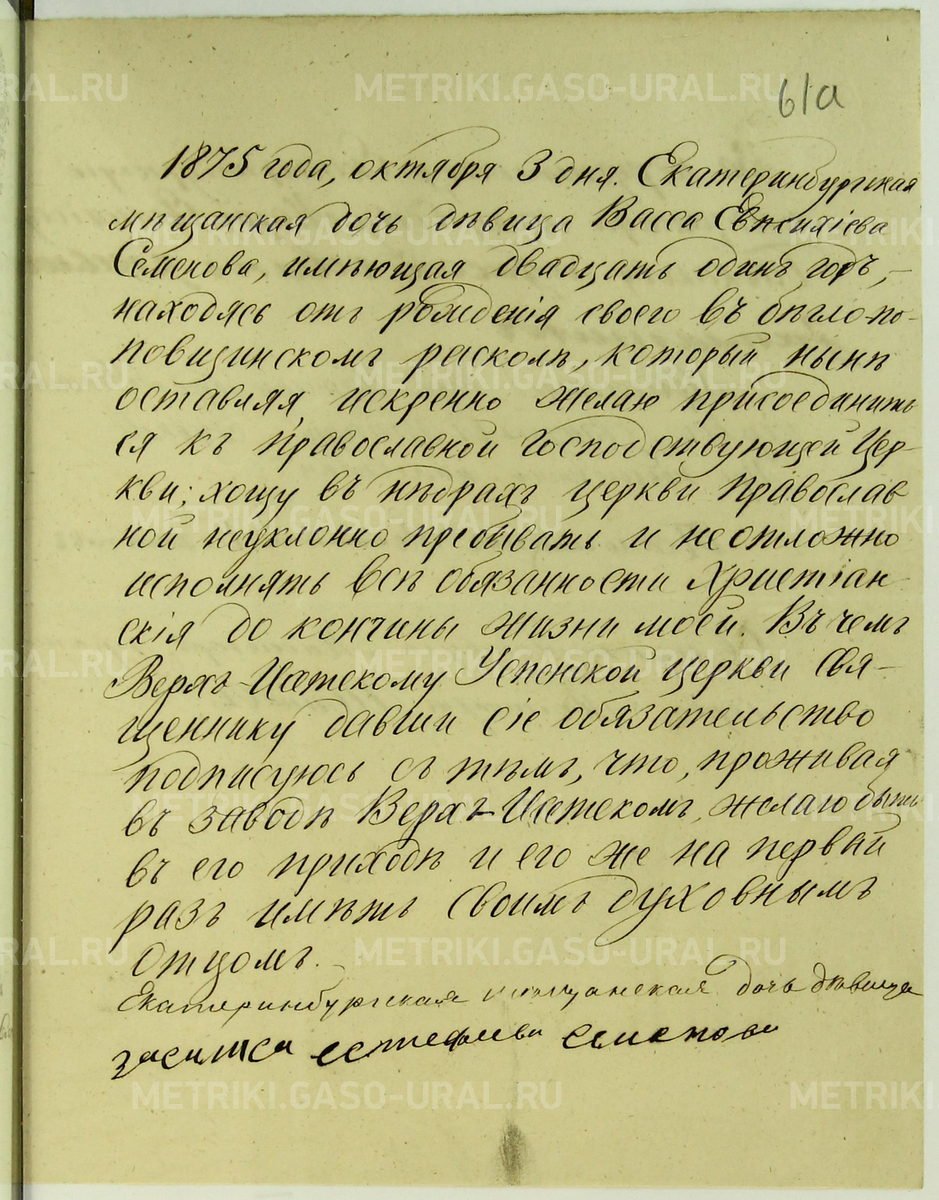 61а
1875 года, октября 3 дня. Екатеринбургская
мѣщанская дочь дѣвица Васса
Семенова, имѣющая двадцать одинъ годъ, –
находясь отъ рожденія своего въ бѣгло-по-
повщинскомъ расколѣ, который нынѣ
оставляя, искренно желаю присоединить
ся къ православной Господствующей Цер-
кви; хощу въ нѣдрахъ церкви Православ
ной неуклонно пребывать и неотложно
исполнять всѣ обязанности Христіан-
скія до кончины жизни моей. Въ чемъ
Верхъ-Исетскому Успенской церкви Свя-
щеннику давши сіе обязательство
подписуюсь съ тѣмъ, что, проживая
въ заводѣ Верхъ-Исетскомъ, желаю быть
въ его приходѣ и его же на первый
разъ имѣть своимъ духовнымъ
отцомъ. –
Екатеринбургская мѣщанская дочь дѣвица
Семенова
METRIKI.GASO-URAL.RU